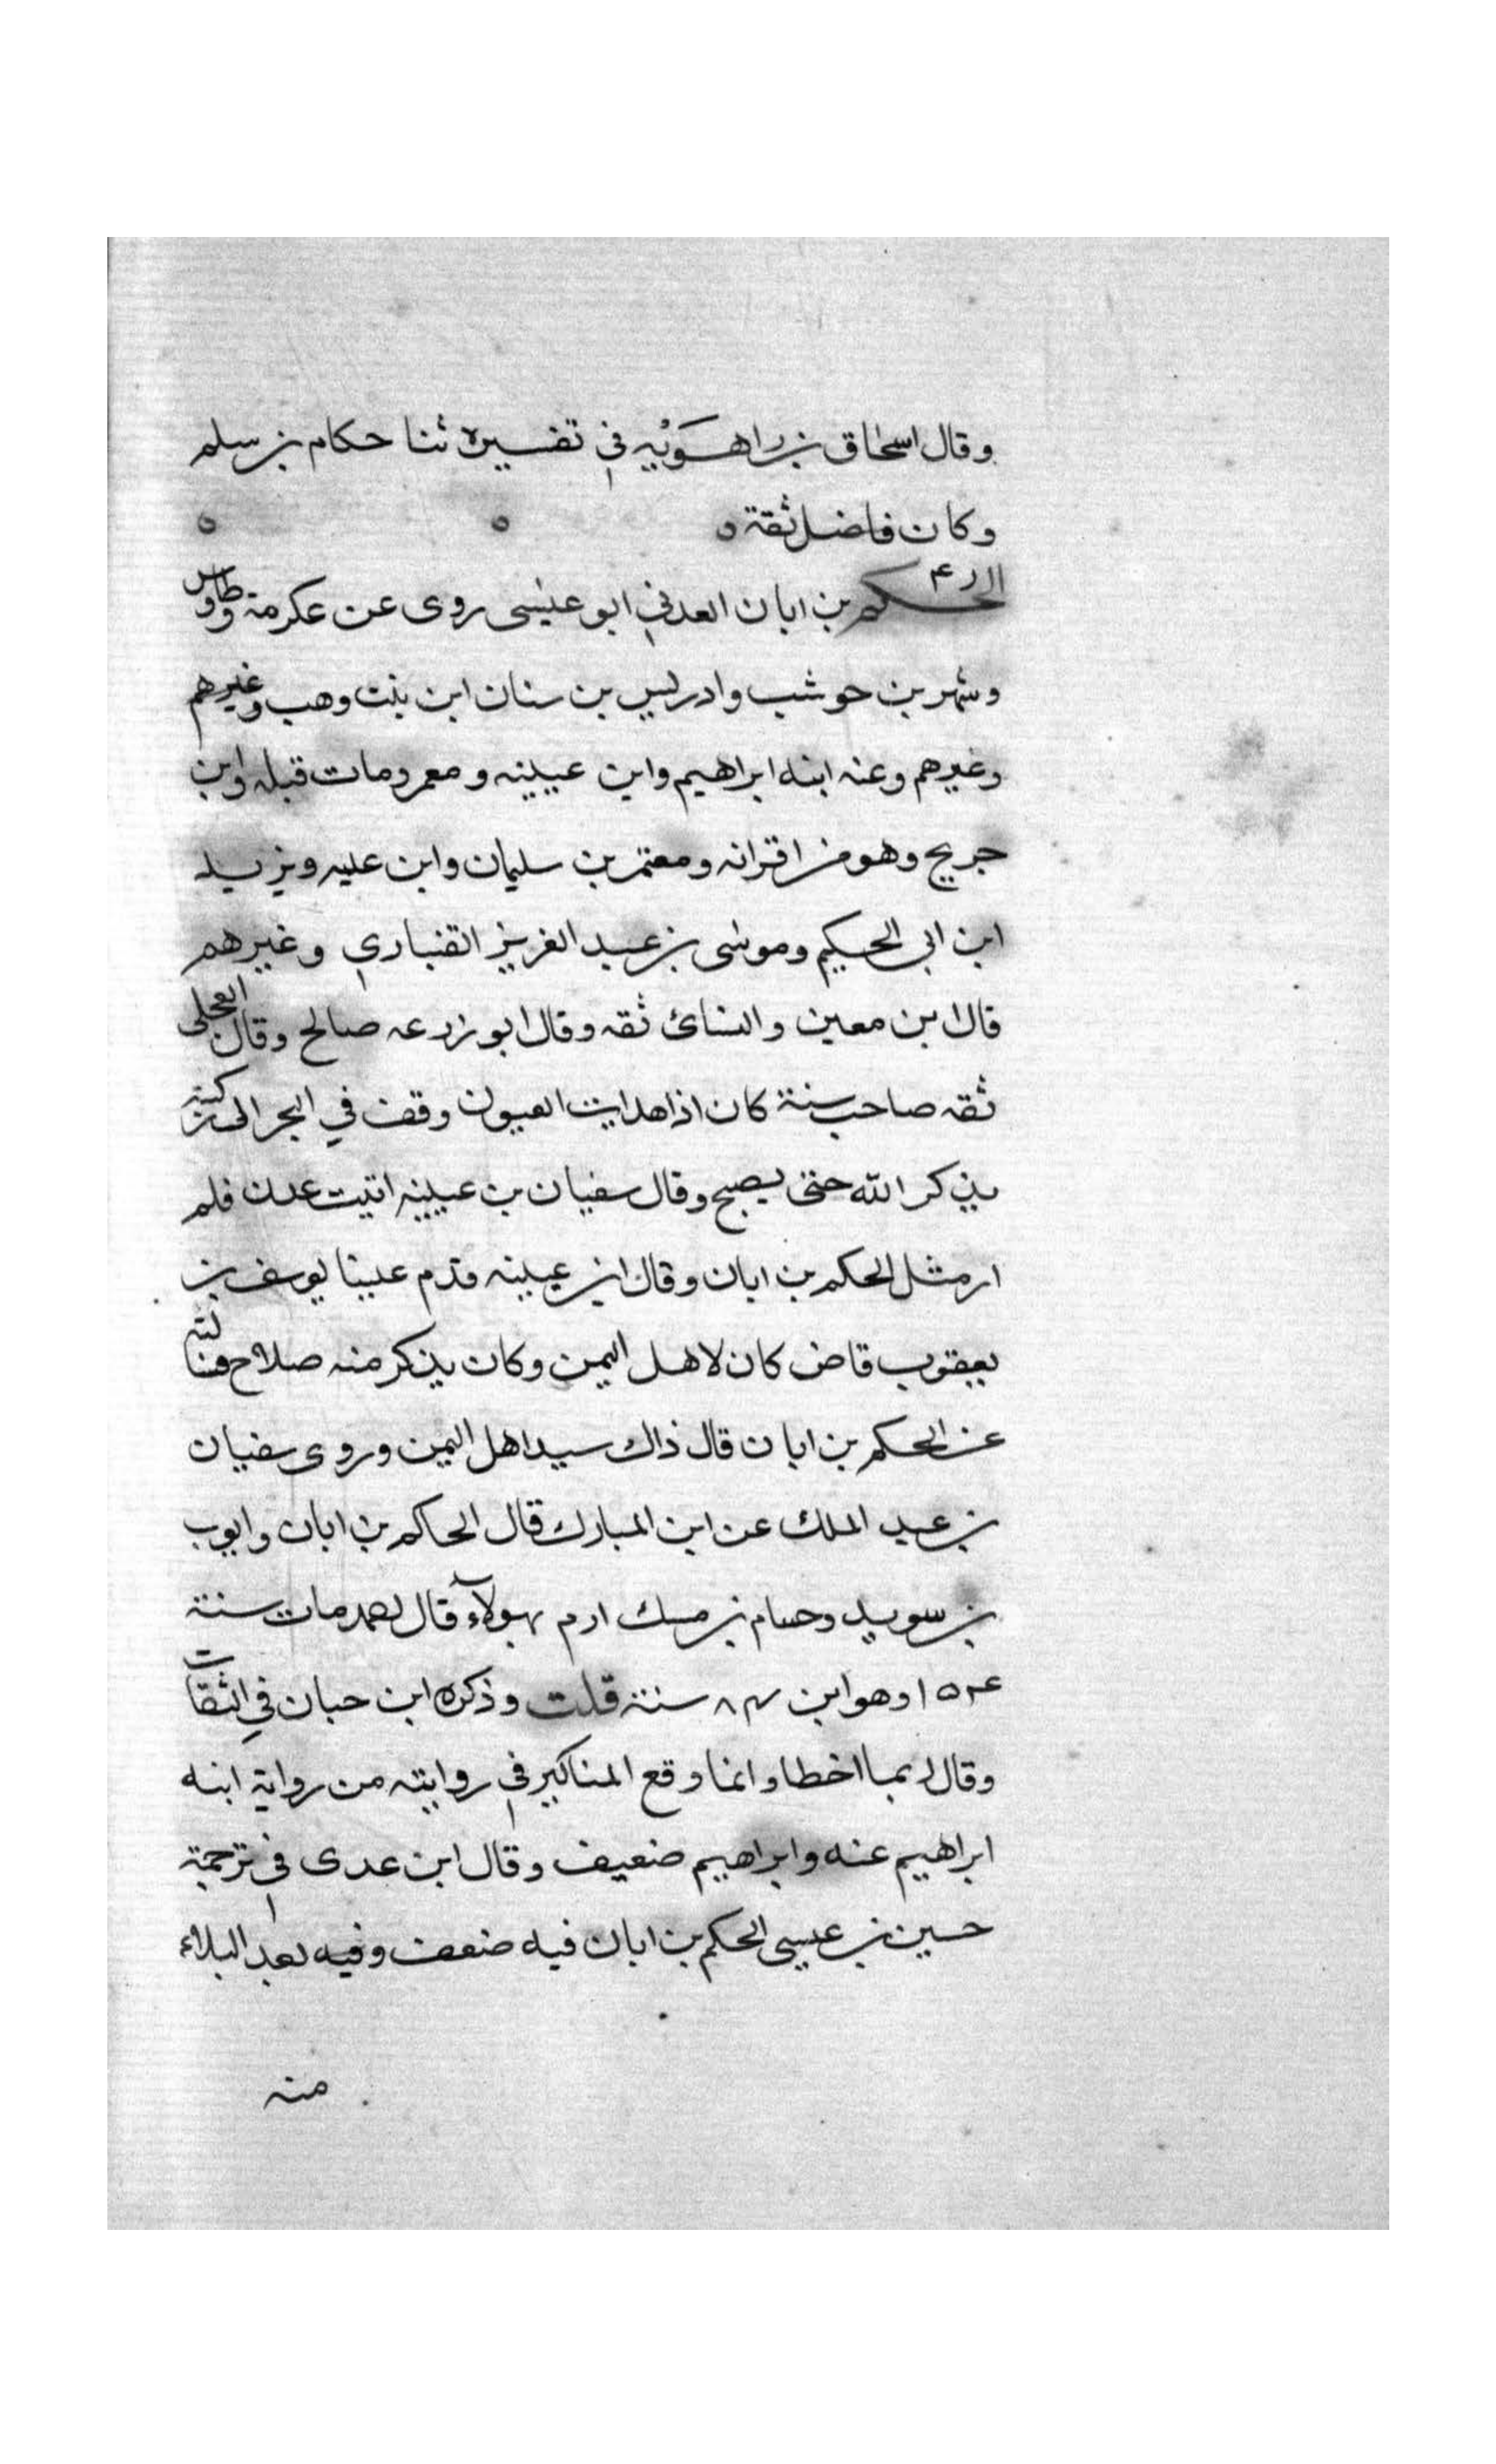 وقال اسحاق بن راهَوَيْه في تفسيره ثنا حكام بن سلم
وكان فاضل ثقة ه ه ه
الحكم بن ابان العدني ابو عيسى روى عن عكرمة وطاوس
وشهر بن حوشب وادريس بن سنان ابن بنت وهب وغيرهم
وغيرهم وعنه ابنه ابراهيم وابن عيينه ومعمر ومات قبله وابن
جريج وهو من اقرانه ومعتمر بن سليمان وابن عليه ويزيد
ابن ابي الحكيم وموسى بن عبد العزيز القنباري وغيرهم
قال ابن معين والنسائ ثقه وقال ابو زرعه صالح وقال العجلى
ثقه صاحب سنة كان اذا هدات العيون وقف في البحر الى ركبتيه
يذكر الله حتى يصبح وقال سفيان بن عيينه اتيت عدن فلم
ار مثل الحكم بن ابان وقال ابن عيينه قدم علينا يوسف بن
يعقوب قاض كان لاهل اليمن وكان يذكر منه صلاح فسالته
عن الحكم بن ابان قال ذاك سيد اهل اليمن وروى سفيان
بن عبد الملك عن ابن المبارك قال الحاكم بن ابان وايوب
بن سويد وحسام بن مسك ارم بهولآء قال احمد مات سنة
١٥٤ وهو ابن ٨٤ سنة قلت وذكره ابن حبان في الثقات
وقال ربما اخطا وانما وقع المناكير في روايته من رواية ابنه
ابراهيم عنه وابراهيم ضعيف وقال ابن عدى في ترجمة
حسين بن عيسى الحكم بن ابان فيه ضعف وفيه بعد البلاء
منه